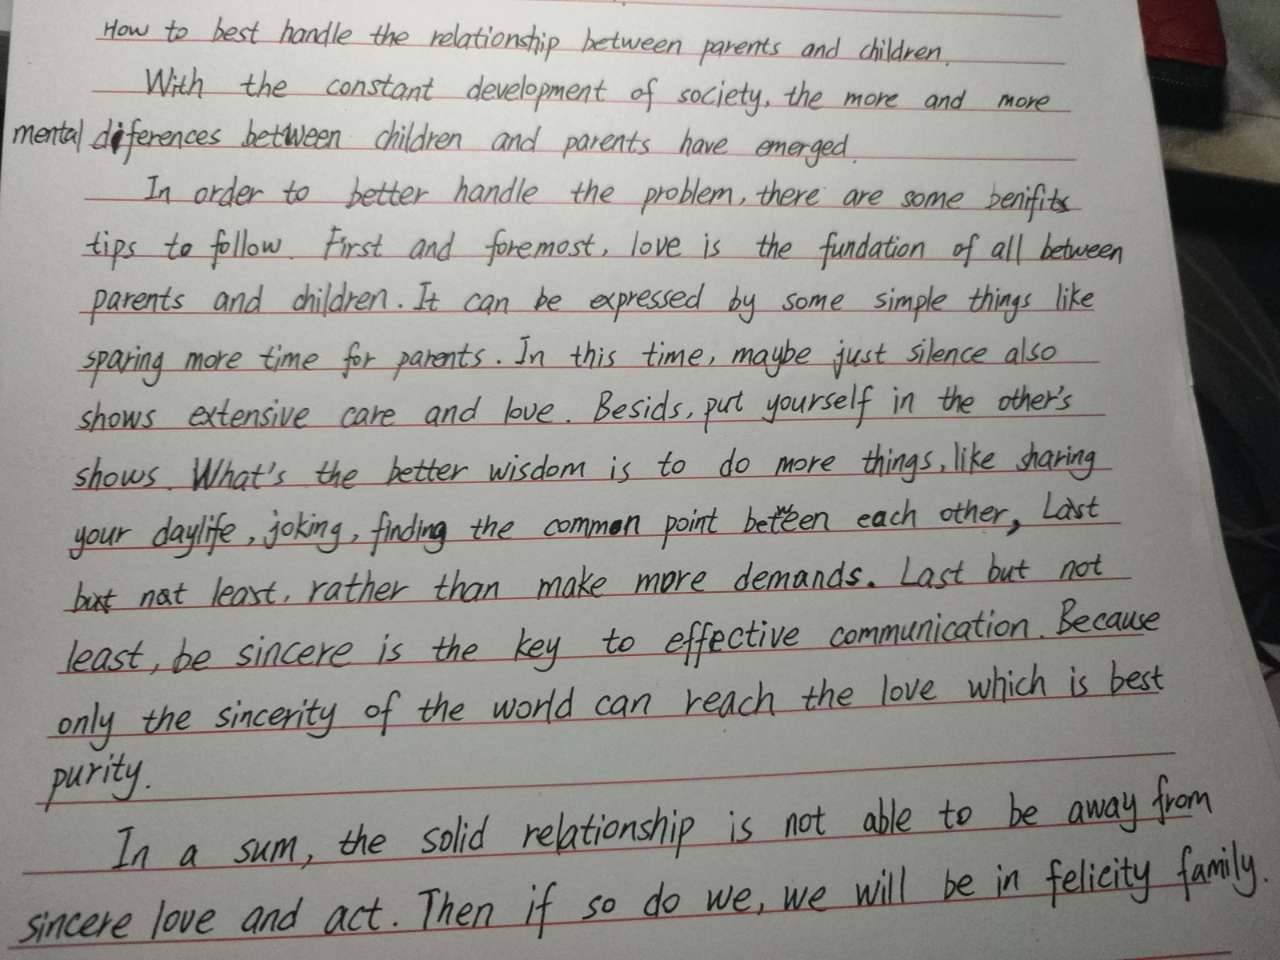 How to best handle the relationship between parents and children.
With the constant development of society, the more and more
mental diferences between children and parents have emerged.
In order to better handle the problem, there are some benifits
tips to follow. First and foremost, love is the fundation of all between
parents and children. It can be expressed by some simple things like
sparing more time for parents. In this time, maybe just silence also
shows extensive care and love. Besids, put yourself in the other's
shows. What's the better wisdom is to do more things, like sharing
your daylife, joking, finding the common point between each other, Last
but not least, rather than make more demands. Last but not
least, be sincere is the key to effective communication. Because
only the sincerity of the world can reach the love which is best
purity.
In a sum, the solid relationship is not able to be away from
sincere love and act. Then if so do we, we will be in felicity family.